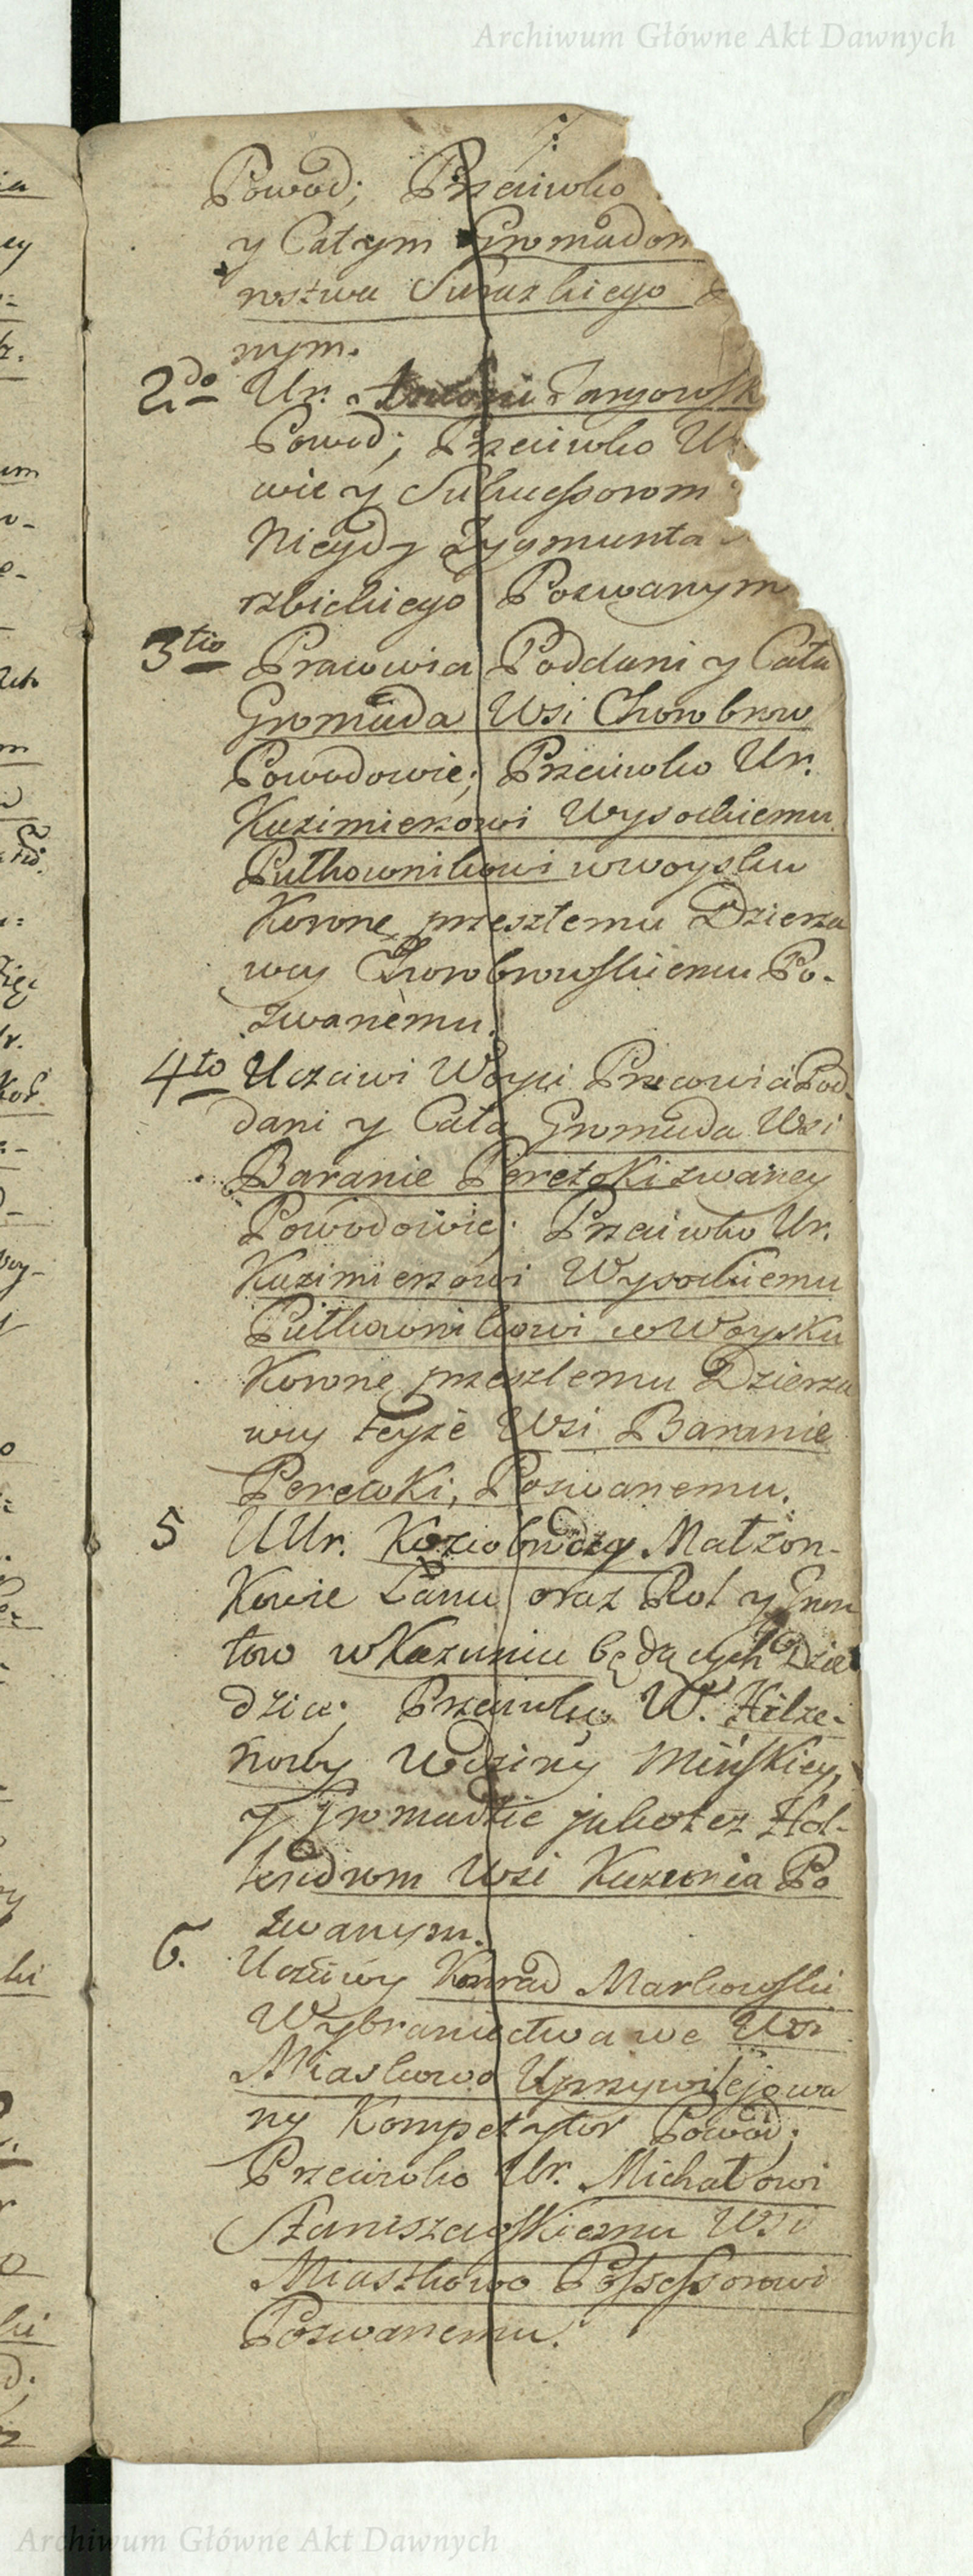 Archiwum Główne Akt Dawnych
Powod; Przeciwko
y Całym Gromadom
rostwa Suraskiego
nym.
2do Ur. Antoni Targowsk
Powod; Przeciwko U
wie y Sukcessorom
Niegdy Zygmunta
rzbickiego Pozwanym
3tio Pracowici Poddani y Cała
Gromada Wsi Chorobrow
Powodowie; Przeciwko Ur.
Kazimierzowi Wysockiemu
Pułkownikowi w woysku
Koronę przeszłemu Dzierża
wcy Chorobrowskiemu Po-
zwanemu.
4to Uczciwi Woyci Pracowici Pod
dani y Cała Gromada Wsi
Baranie Peretoki zwaney
Powodowie; Przeciwko Ur.
Kazimierzowi Wysockiemu
Pułkownikowi w Woysku
Koronę przeszłemu Dzierża
wcy teyże Wsi Baranie
Peretoki, Pozwanemu.
5 UUr. Koziobrodzcy Małżon-
kowie Łanu oraz Rol y Grun
tow w Kazuniu będących Dzie
dzice; Przeciwko W. Hilze-
nowy Wdziny Mińskiey,
y Gromadzie jako też Hol-
lendrom Wsi Kazunia Po
zwanym.
6. Uczciwy Konrad Markowski
Wybraniectwa we Wsi
Miastkowo Uprzywilejowa
ny Kompetytor Powod;
Przeciwko Ur. Michałowi
Staniszewskiemu Wsi
Miastkowo Possessorowi
Pozwanemu.
Archiwum Główne Akt Dawnych